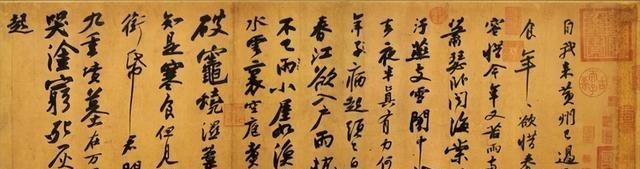 自我來黃州已過
食年〻欲惜春
容惜今年又苦雨兩
蕭瑟卧聞海棠
汙燕支雪闇中
去夜半真有力何
年子病起頭已白
春江欲入戶雨勢
不已雨小屋如漁
水雲裏空庖煮
破竈燒濕葦
知是寒食但見
銜帋君門
九重墳墓在万
哭塗窮死灰
起